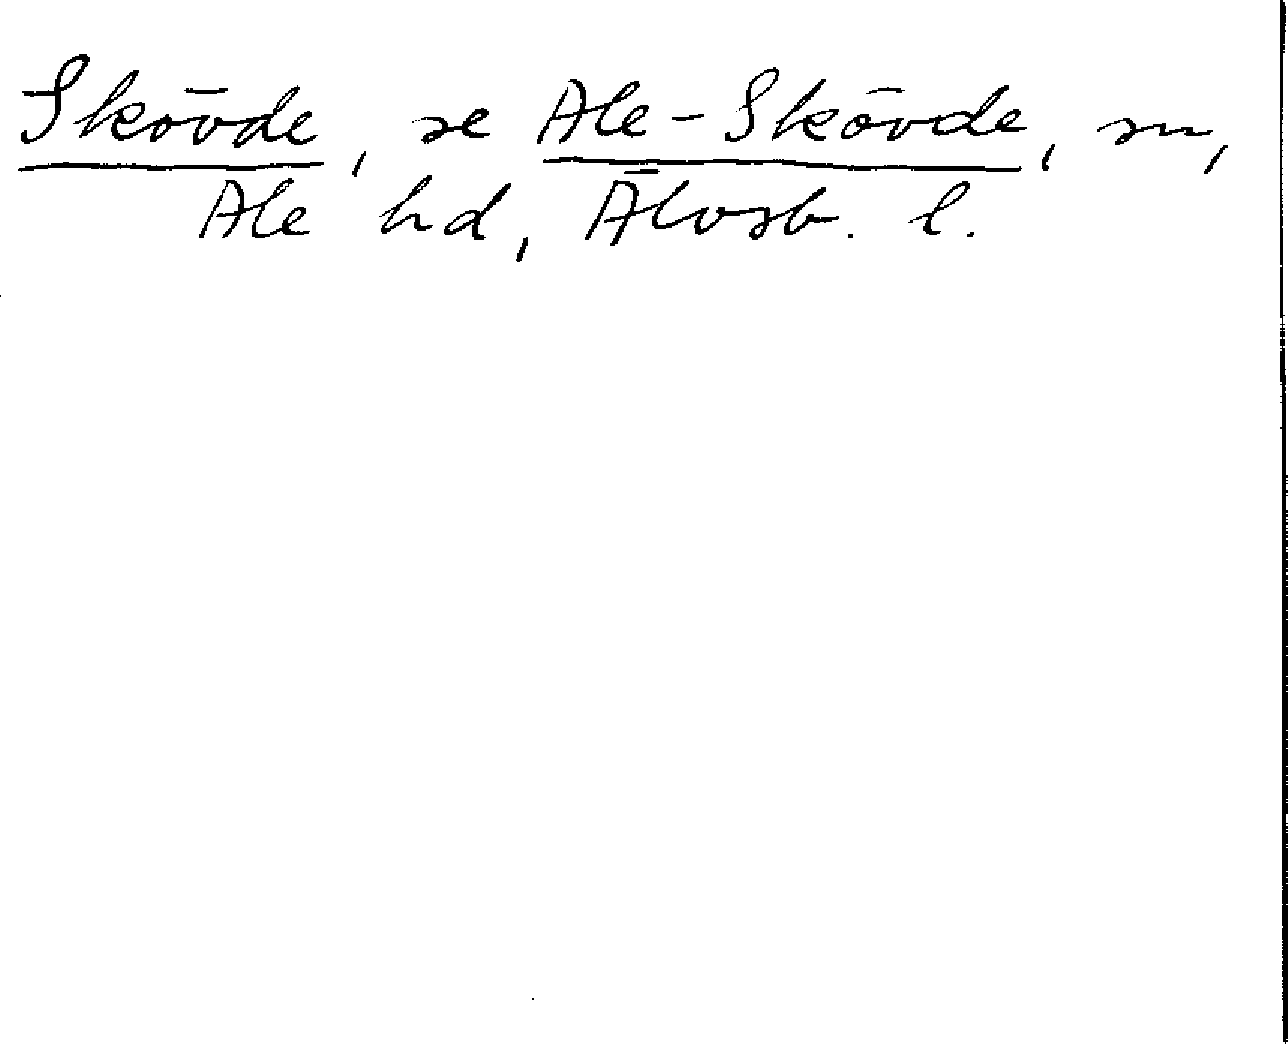 Skövde, se Ale-Skövde, sn,
Ale hd, Älvsb. l.